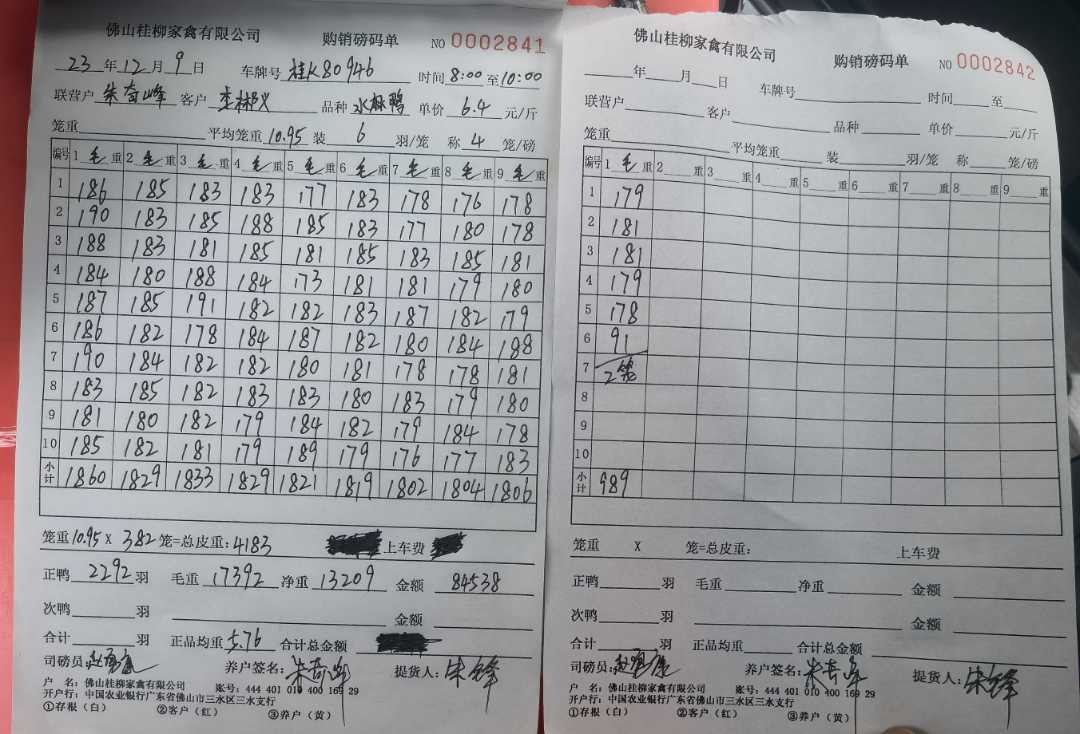 佛山桂柳家禽有限公司 购销磅码单 NO 0002841
23 年 12 月 9 日 车牌号 桂K80946 时间 8:00 至 10:00
联营户 朱奇峰 客户 品种 水麻鸭 单价 6.4 元/斤
笼重 平均笼重 10.95 装 6 羽/笼 称 4 笼/磅
编号 1 毛 重 2 毛 重 3 毛 重 4 毛 重 5 毛 重 6 毛 重 7 毛 重 8 毛 重 9 毛 重
1 186 185 183 183 177 183 178 176 178
2 190 183 185 188 185 183 177 180 178
3 188 183 181 185 181 185 183 185 181
4 184 180 188 184 173 181 181 179 180
5 187 185 191 182 182 183 187 182 179
6 186 182 178 184 187 182 180 184 188
7 190 184 182 182 180 181 178 178 181
8 183 185 182 183 183 180 183 179 180
9 181 180 182 179 184 182 179 184 178
10 185 182 181 179 189 179 176 177 183
小计 1860 1829 1833 1829 1821 1819 1802 1804 1806
笼重 10.95 X 382 笼=总皮重: 4183 上车费
正鸭 2292 羽 毛重 17392 净重 13209 金额 84538
次鸭 羽 金额
合计 羽 正品均重 5.76 合计总金额
司磅员: 养户签名: 朱奇峰 提货人: 朱锋
户 名: 佛山桂柳家禽有限公司 账号: 444 401 010 400 169 29
开户行: 中国农业银行广东省佛山市三水区三水支行
①存根(白) ②客户(红) ③养户(黄)
佛山桂柳家禽有限公司 购销磅码单 NO 0002842
年 月 日 车牌号 时间 至
联营户 客户 品种 单价 元/斤
笼重 平均笼重 装 羽/笼 称 笼/磅
编号 1 毛 重 2 重 3 重 4 重 5 重 6 重 7 重 8 重 9 重
1 179
2 181
3 181
4 179
5 178
6 91
7 2笼
8
9
10
小计 989
笼重 X 笼=总皮重: 上车费
正鸭 羽 毛重 净重 金额
次鸭 羽 金额
合计 羽 正品均重 合计总金额
司磅员: 养户签名: 朱奇峰 提货人: 朱锋
户 名: 佛山桂柳家禽有限公司 账号: 444 401 010 400 169 29
开户行: 中国农业银行广东省佛山市三水区三水支行
①存根(白) ②客户(红) ③养户(黄)